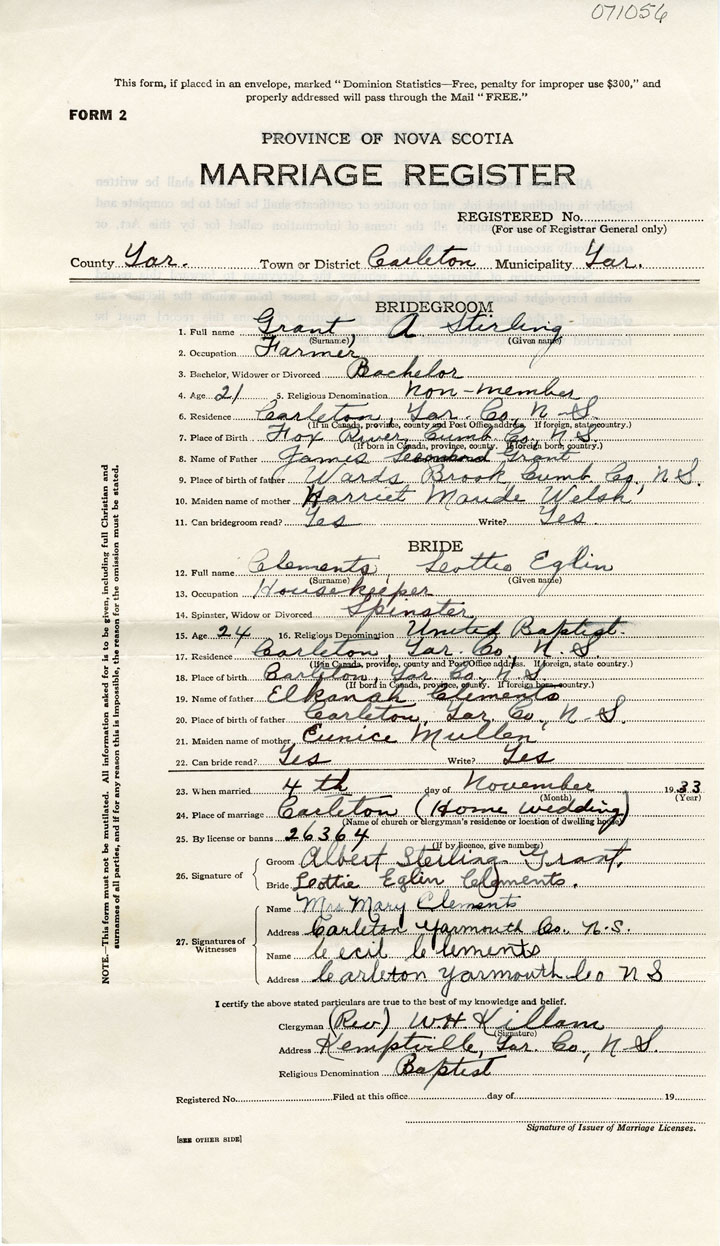 071056
This form, if placed in an envelope, marked "Dominion Statistics—Free, penalty for improper use $300," and
properly addressed will pass through the Mail "FREE."
FORM 2
PROVINCE OF NOVA SCOTIA
MARRIAGE REGISTER
REGISTERED No.
(For use of Registrar General only)
County Yar. Town or District Carleton Municipality Yar.
BRIDEGROOM
1. Full name Grant, A Stirling
(Surname) (Given name)
2. Occupation Farmer
3. Bachelor, Widower or Divorced Bachelor
4. Age 21 5. Religious Denomination Non-member
6. Residence Carleton, Yar. Co, N-S.
(If in Canada, province, county and Post Office address. If foreign, state country.)
7. Place of Birth Fox River, Cumb. Co. N.S.
(If born in Canada, province, county. If foreign born, country.)
8. Name of Father James Grant
9. Place of birth of father Wards Brook Cumb. Co, N S.
10. Maiden name of mother Harriet Maude Welsh
11. Can bridegroom read? Yes Write? Yes.
BRIDE
12. Full name Clements, Lottie Eglin
(Surname) (Given name)
13. Occupation Housekeeper
14. Spinster, Widow or Divorced Spinster
15. Age 24 16. Religious Denomination United Baptist.
17. Residence Carleton, Yar. Co, N. S.
(If in Canada, province, county and Post Office address. If foreign, state country.)
18. Place of birth Carleton, Yar. Co, N S
(If born in Canada, province, county. If foreign born, country.)
19. Name of father Elkanah Clements
20. Place of birth of father Carleton, Yar. Co, N-S.
21. Maiden name of mother Eunice Mullen
22. Can bride read? Yes Write? Yes
23. When married 4 th day of November 1933
(Month) (Year)
24. Place of marriage Carleton (Home wedding)
(Name of church or clergyman's residence or location of dwelling house)
25. By license or banns 26364
(If by licence, give number)
26. Signature of
Groom Albert Sterling Grant.
Bride Lottie Eglin Clements.
27. Signatures of
Witnesses
Name Mrs Mary Clements
Address Carleton Yarmouth Co. N.S.
Name Cecil Clements
Address Carleton Yarmouth Co N S
I certify the above stated particulars are true to the best of my knowledge and belief.
Clergyman (Rev) WH Killam
(Signature)
Address Kemptville, Yar. Co, N-S.
Religious Denomination Baptist
Registered No. Filed at this office day of 19
Signature of Issuer of Marriage Licenses.
[SEE OTHER SIDE]
NOTE.—This form must not be mutilated. All information asked for is to be given, including full Christian and
surnames of all parties, and if for any reason this is impossible, the reason for the omission must be stated.